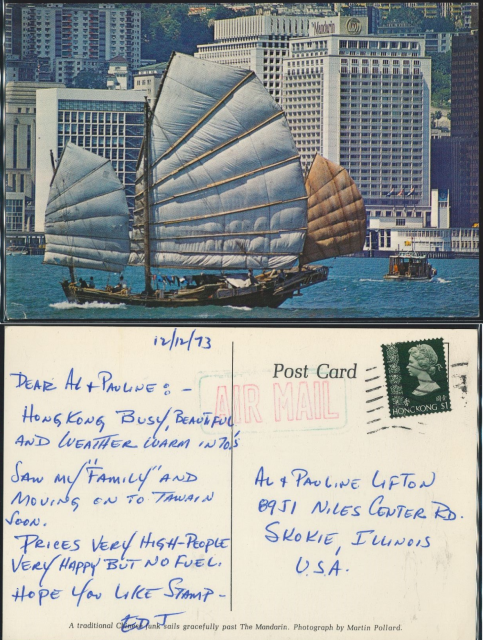 Mandarin
12/12/73
DEAR AL & PAULINE: -
HONG KONG BUSY, BEAUTIFUL
AND WEATHER WARM IN 70's
SAW MY "FAMILY" AND
MOVING ON TO TAWAIN
SOON.
PRICES VERY HIGH-PEOPLE
VERY HAPPY BUT NO FUEL.
HOPE YOU LIKE STAMP-
ED T
Post Card
AIR MAIL
HONG KONG $1
AL & PAULINE LIFTON
8951 NILES CENTER RD.
SKOKIE, ILLINOIS
U.S.A.
A traditional Chinese junk sails gracefully past The Mandarin. Photograph by Martin Pollard.